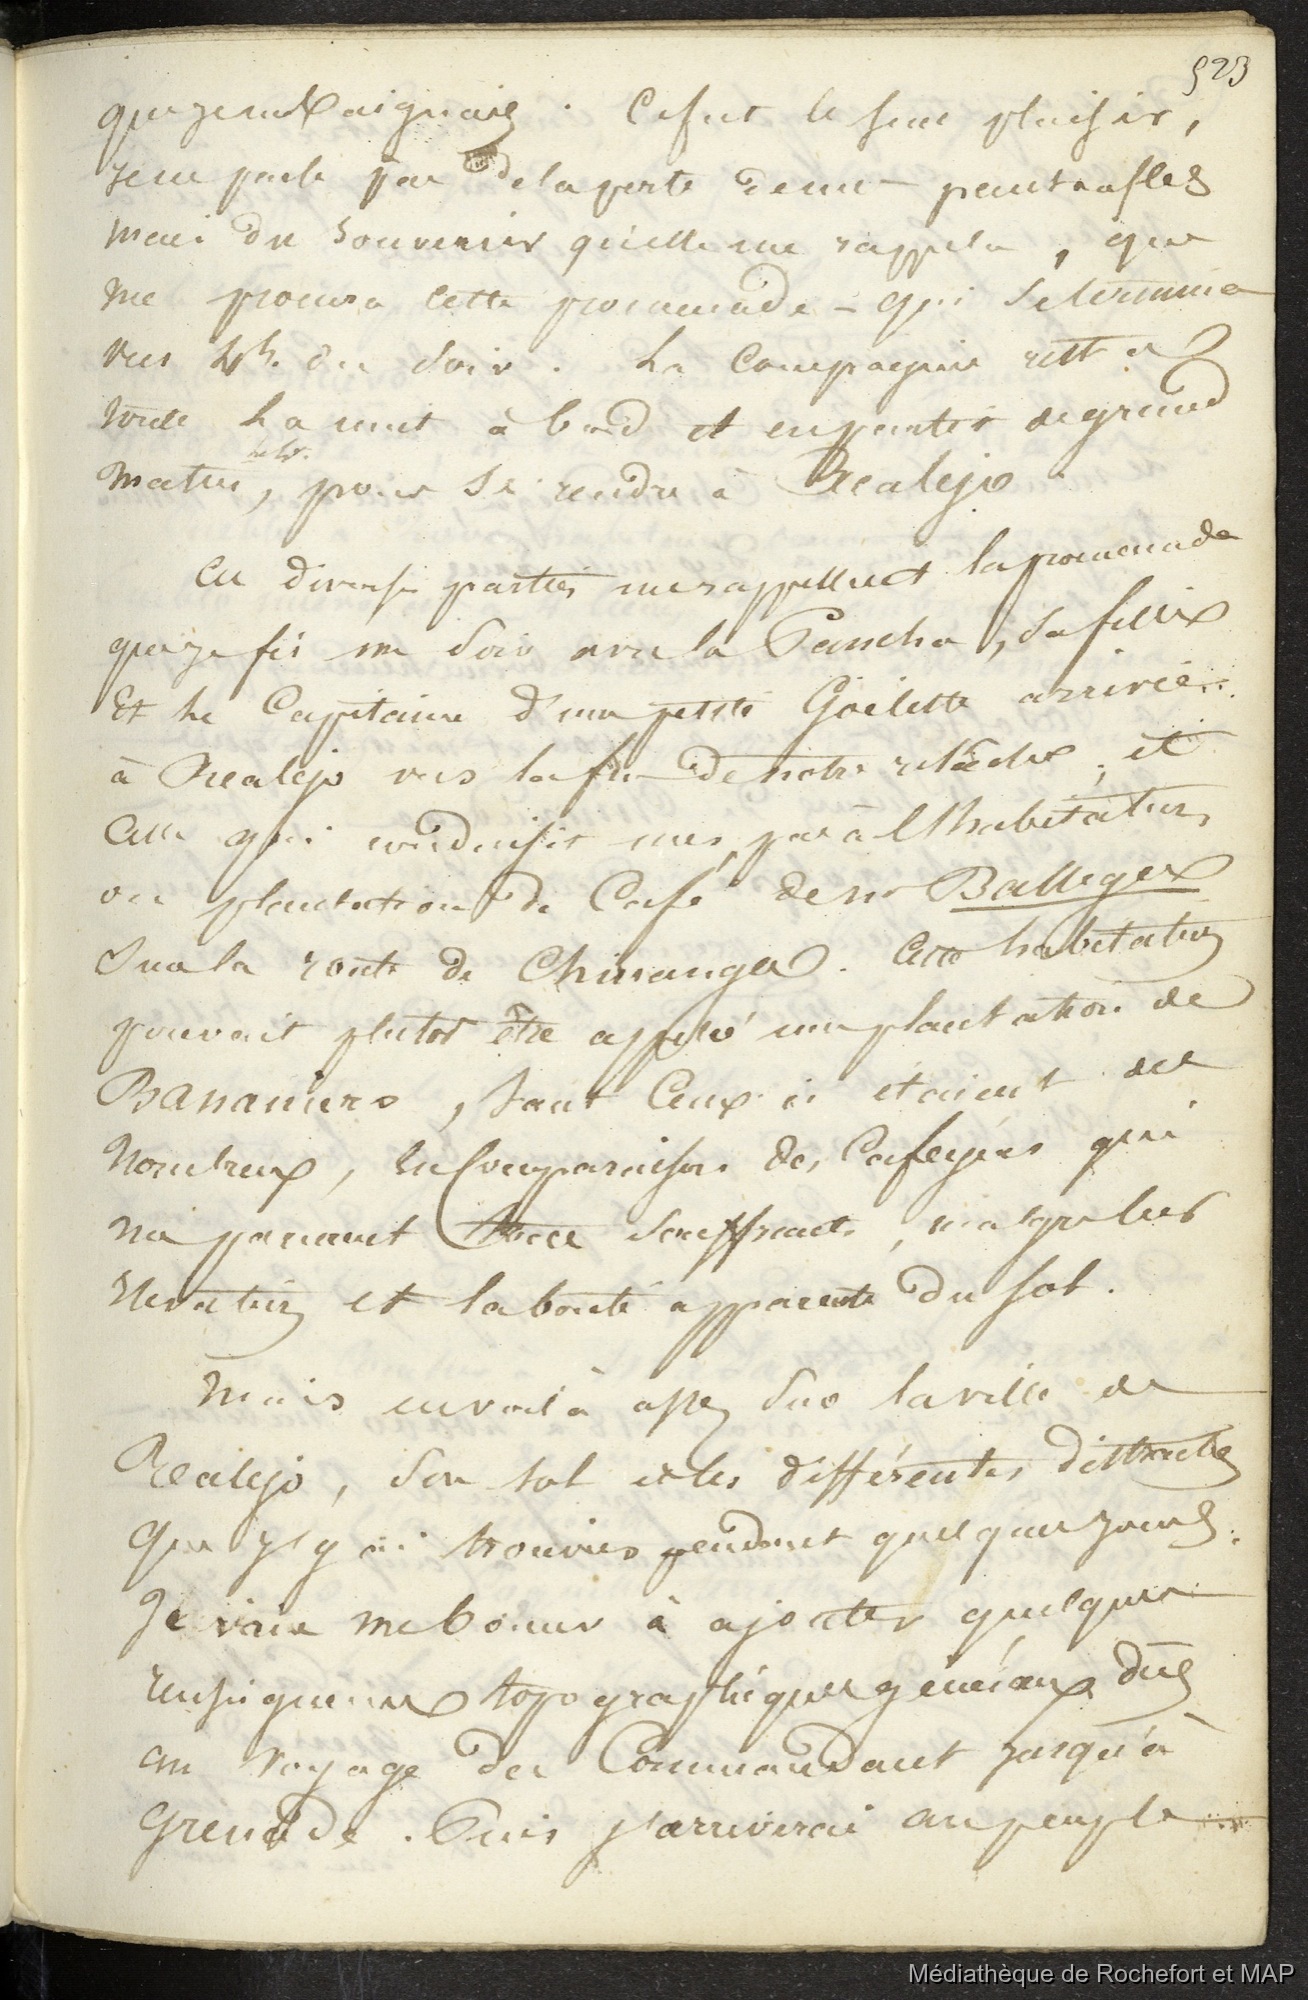 523
que je me baignais. Ce fut le seul plaisir,
je ne parle pas de la perte de mes pantoufles
mais du souvenir qu'elle me rappela, que
me procura cette promenade - qui se termina
vers 4h. du soir. La Compagnie resta
toute La nuit à bord et en partit de grand
matin, pour se rendre à Realejo.
Ces diverses parties me rappellent la promenade
que je fis un soir avec la Pancha, sa fille
Et le Capitaine d'une petite Goëlette arrivée
à Realejo vers la fin de notre relâche, et
Celle qui conduisit mes pas à l'habitation
ou plantation de Café de Mr Balleger
Sur la route de Chinanga. Cette habitation
pouvait plutot être appelé une plantation de
Bananiers, tant Ceux ci étaient
Nombreux, en Comparaison des Cafeyers qui
me parurent tous souffrants, malgré leur
élévation et la bonté apparente du sol.
Mais en voilà assez sur la ville de
Realejo, son sol et les différentes
que j'y ai trouvées pendant quelques jours.
Je vais me borner à ajouter quelques
renseignemens topographiques généraux dûs
au voyage du Commandant jusqu'à
Grenade. Puis j'arriverai au peuple
Médiathèque de Rochefort et MAP